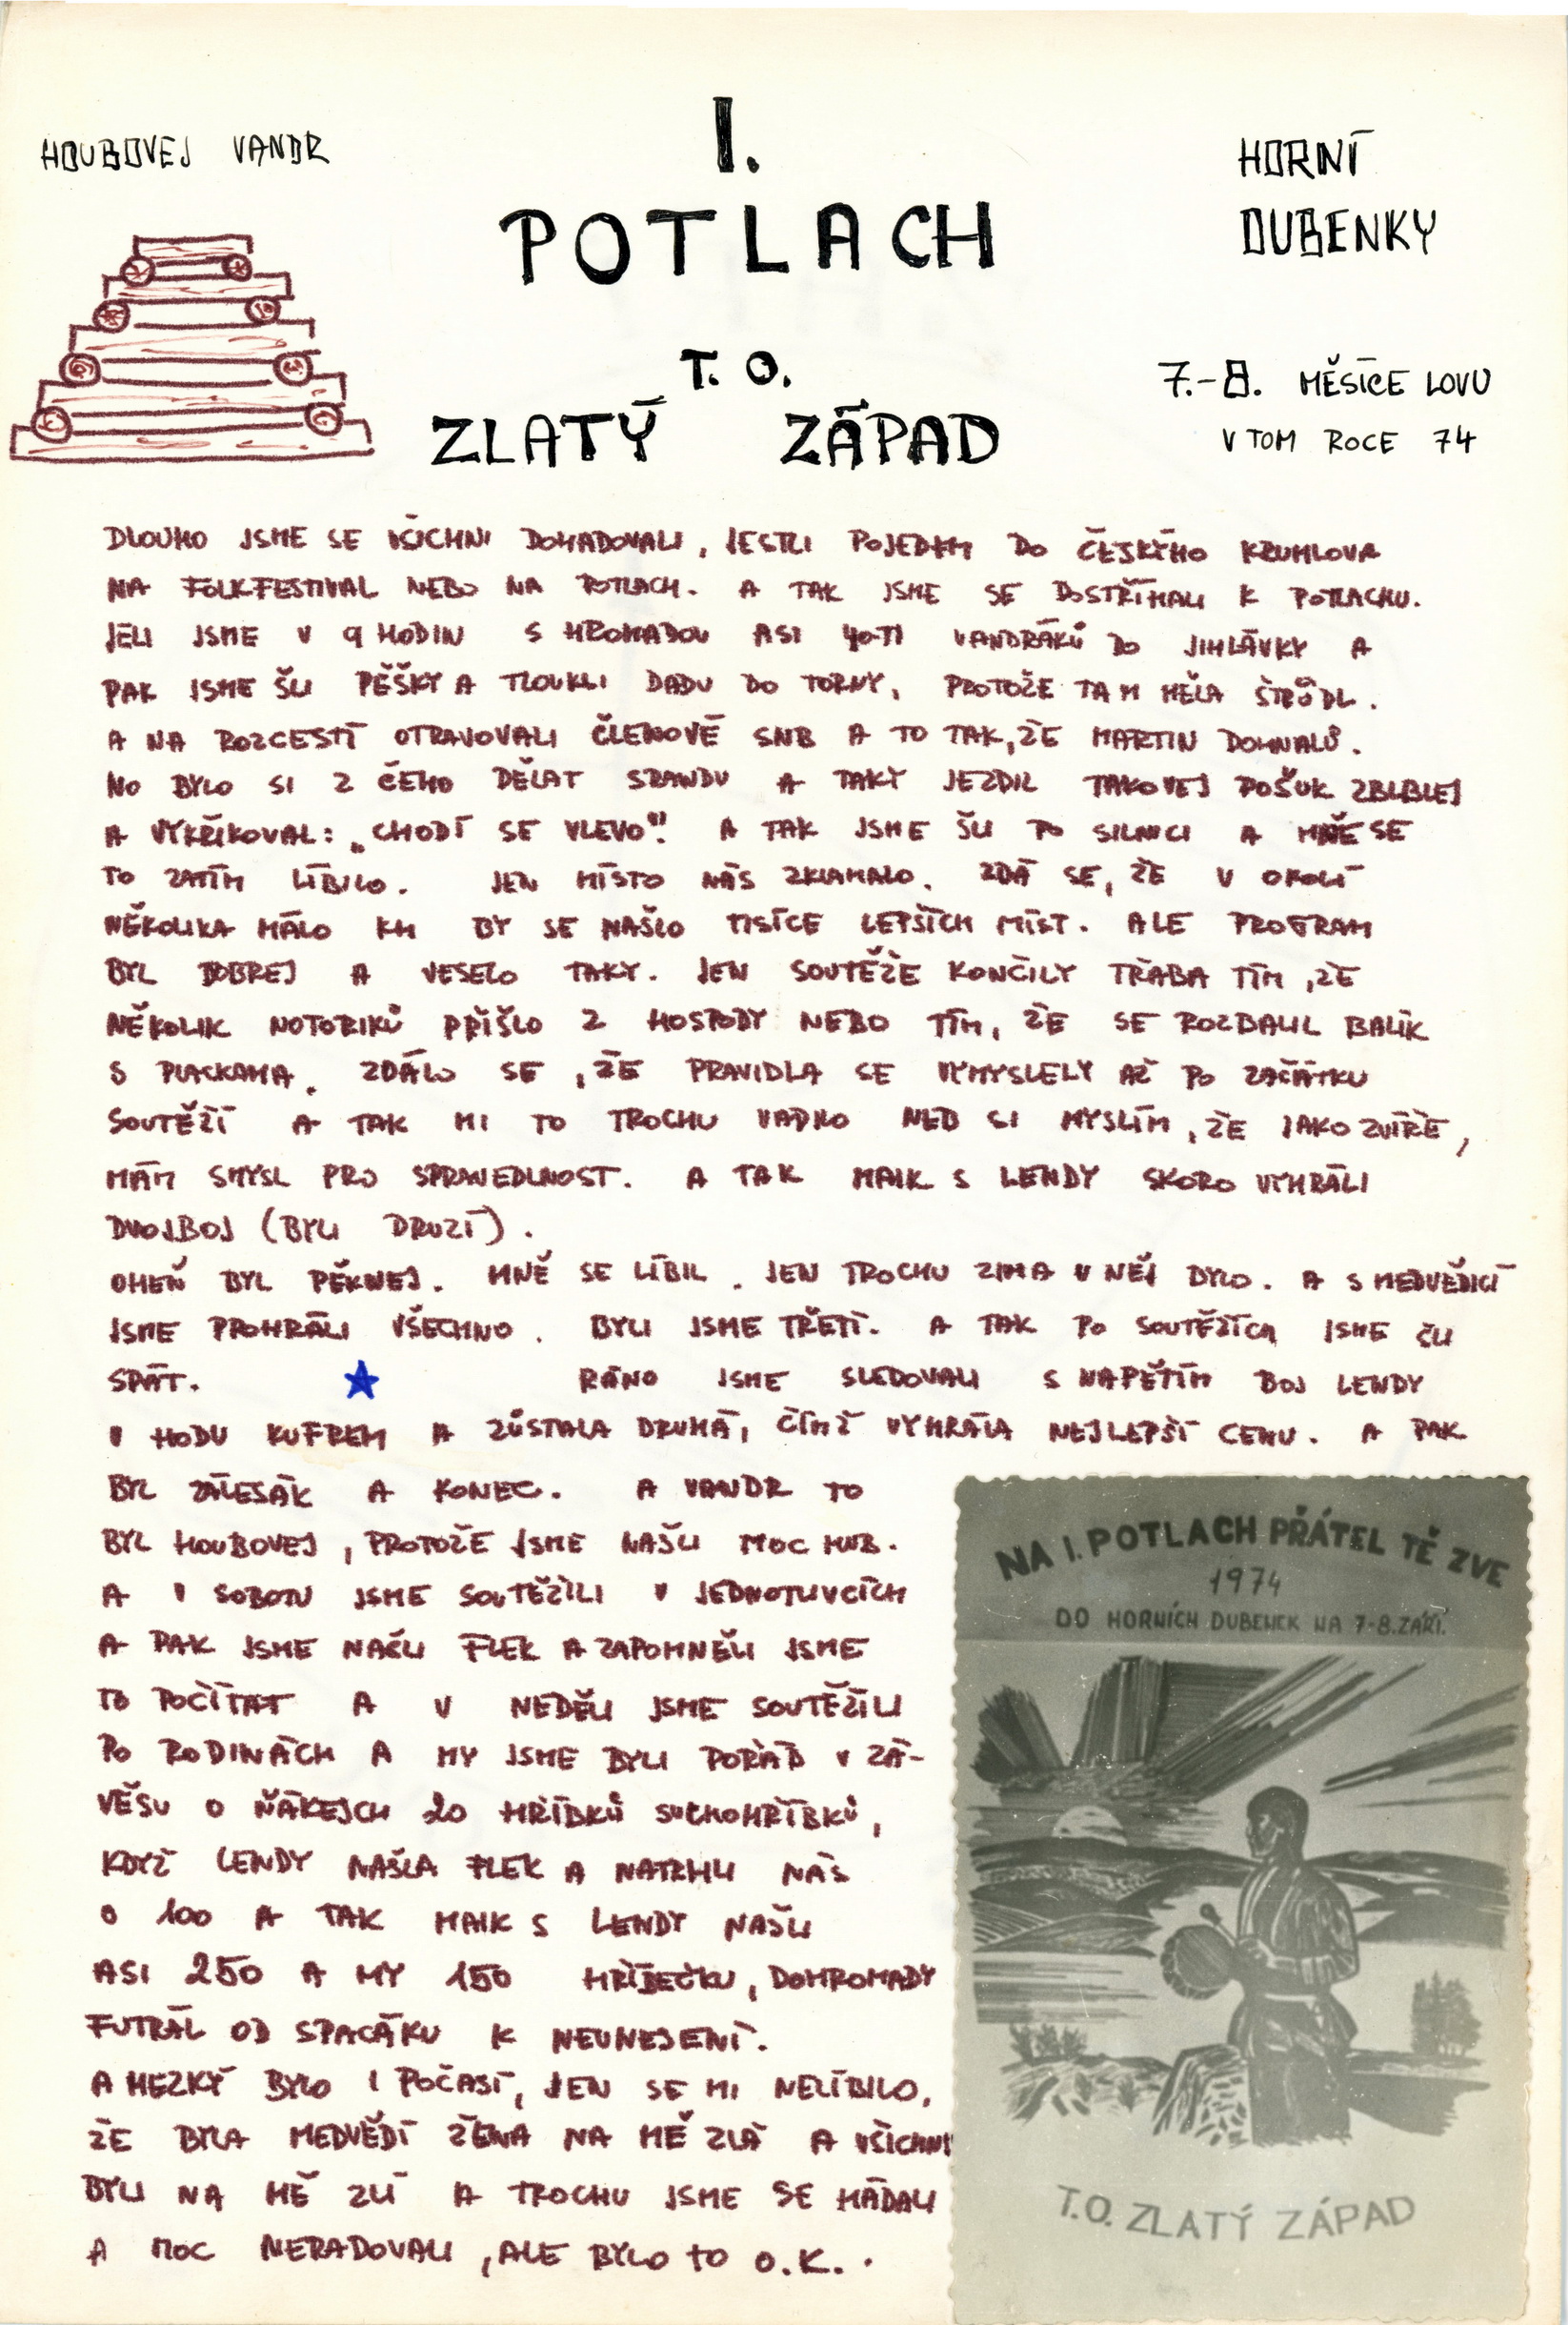 HOUBOVEJ VANDR
I.
POTLACH
T. O.
ZLATÝ ZÁPAD
HORNÍ
DUBENKY
7.-8. MĚSÍCE LOVU
V TOM ROCE 74
DLOUHO JSME SE VŠICHNI DOHADOVALI, JESTLI POJEDEM DO ČESKÝHO KRUMLOVA
NA FOLKFESTIVAL NEBO NA POTLACH. A TAK JSME SE DOSTŘÍHALI K POTLACHU.
JELI JSME V 9 HODIN S HROMADOU ASI 40-TI VANDRÁKŮ DO JIHLÁVKY A
PAK JSME ŠLI PĚŠKY A TLOUKLI DADU DO TORNY, PROTOŽE TAM MĚLA ŠTRŮDL.
A NA ROZCESTÍ OTRAVOVALI ČLENOVÉ SNB A TO TAK, ŽE MARTIN DOHNALŮ.
NO BYLO SI Z ČEHO DĚLAT SRANDU A TAKY JEZDIL TAKOVEJ POŠUK ZBLBLEJ
A VYKŘIKOVAL: „CHODÍ SE VLEVO"! A TAK JSME ŠLI PO SILNICI A MNĚ SE
TO ZATÍM LÍBILO. JEN MÍSTO NÁS ZKLAMALO. ZDÁ SE, ŽE V OKOLÍ
NĚKOLIKA MÁLO KM BY SE NAŠLO TISÍCE LEPŠÍCH MÍST. ALE PROGRAM
BYL DOBREJ A VESELO TAKY. JEN SOUTĚŽE KONČILY TŘEBA TÍM, ŽE
NĚKOLIK NOTORIKŮ PŘIŠLO Z HOSPODY NEBO TÍM, ŽE SE ROZBALIL BALÍK
S PLACKAMA. ZDÁLO SE, ŽE PRAVIDLA SE VYMYSLELY AŽ PO ZAČÁTKU
SOUTĚŽÍ A TAK MI TO TROCHU VADILO NEB SI MYSLÍM, ŽE JAKO ZVÍŘE,
MÁM SMYSL PRO SPRAVEDLNOST. A TAK MAIK S LENDY SKORO VYHRÁLI
DVOJBOJ (BYLI DRUZÍ).
OHEŇ BYL PĚKNEJ. MNĚ SE LÍBIL. JEN TROCHU ZIMA U NĚJ BYLO. A S MEDVĚDICÍ
JSME PROHRÁLI VŠECHNO. BYLI JSME TŘETÍ. A TAK PO SOUTĚŽÍCH JSME ŠLI
SPÁT. RÁNO JSME SLEDOVALI S NAPĚTÍM BOJ LENDY
V HODU KUFREM A ZŮSTALA DRUHÁ, ČÍMŽ VYHRÁLA NEJLEPŠÍ CENU. A PAK
BYL ZÁLESÁK A KONEC. A VANDR TO
BYL HOUBOVEJ, PROTOŽE JSME NAŠLI MOC HUB.
A V SOBOTU JSME SOUTĚŽILI V JEDNOTLIVCÍCH
A PAK JSME NAŠLI FLEK A ZAPOMNĚLI JSME
TO POČÍTAT A V NEDĚLI JSME SOUTĚŽILI
PO RODINÁCH A MY JSME BYLI POŘÁD V ZÁ-
VĚSU O ŇÁKEJCH 20 HŘÍBKŮ SUCHOHŘÍBKŮ,
KDYŽ LENDY NAŠLA FLEK A NATRHLI NÁS
O 100 A TAK MAIK S LENDY NAŠLI
ASI 250 A MY 150 HŘÍBEČKU, DOHROMADY
FUTRÁL OD SPACÁKU K NEUNESENÍ.
A HEZKÝ BYLO I POČASÍ, JEN SE MI NELÍBILO,
ŽE BYLA MEDVĚDÍ ŽENA NA MĚ ZLÁ A VŠICHNI
BYLI NA MĚ ZLÍ A TROCHU JSME SE HÁDALI
A MOC NERADOVALI, ALE BYLO TO O.K..
NA I. POTLACH PŘÁTEL TĚ ZVE
1974
DO HORNÍCH DUBENEK NA 7-8. ZÁŘÍ.
T.O. ZLATÝ ZÁPAD